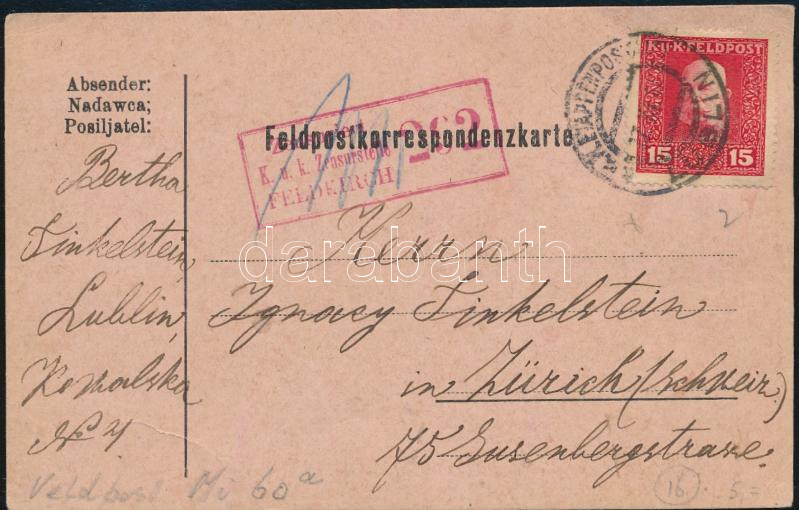 Absender:
Nadawca;
Posiljatel:
Bertha
Finkelstein,
Lublin,
Kowalska
№ 4
Feldpostkorrespondenzkarte
K. u. k. Zensurstelle
FELDKIRCH
262
K.U.K. FELDPOST
15 15
K.u.K. ETAPPENPOSTAMT
Herrn
Ignacy Finkelstein
in Zürich (Schweiz)
75 Susenbergstrasse.
darabanth
Feldpost Mi 60a
16. 5,=
2